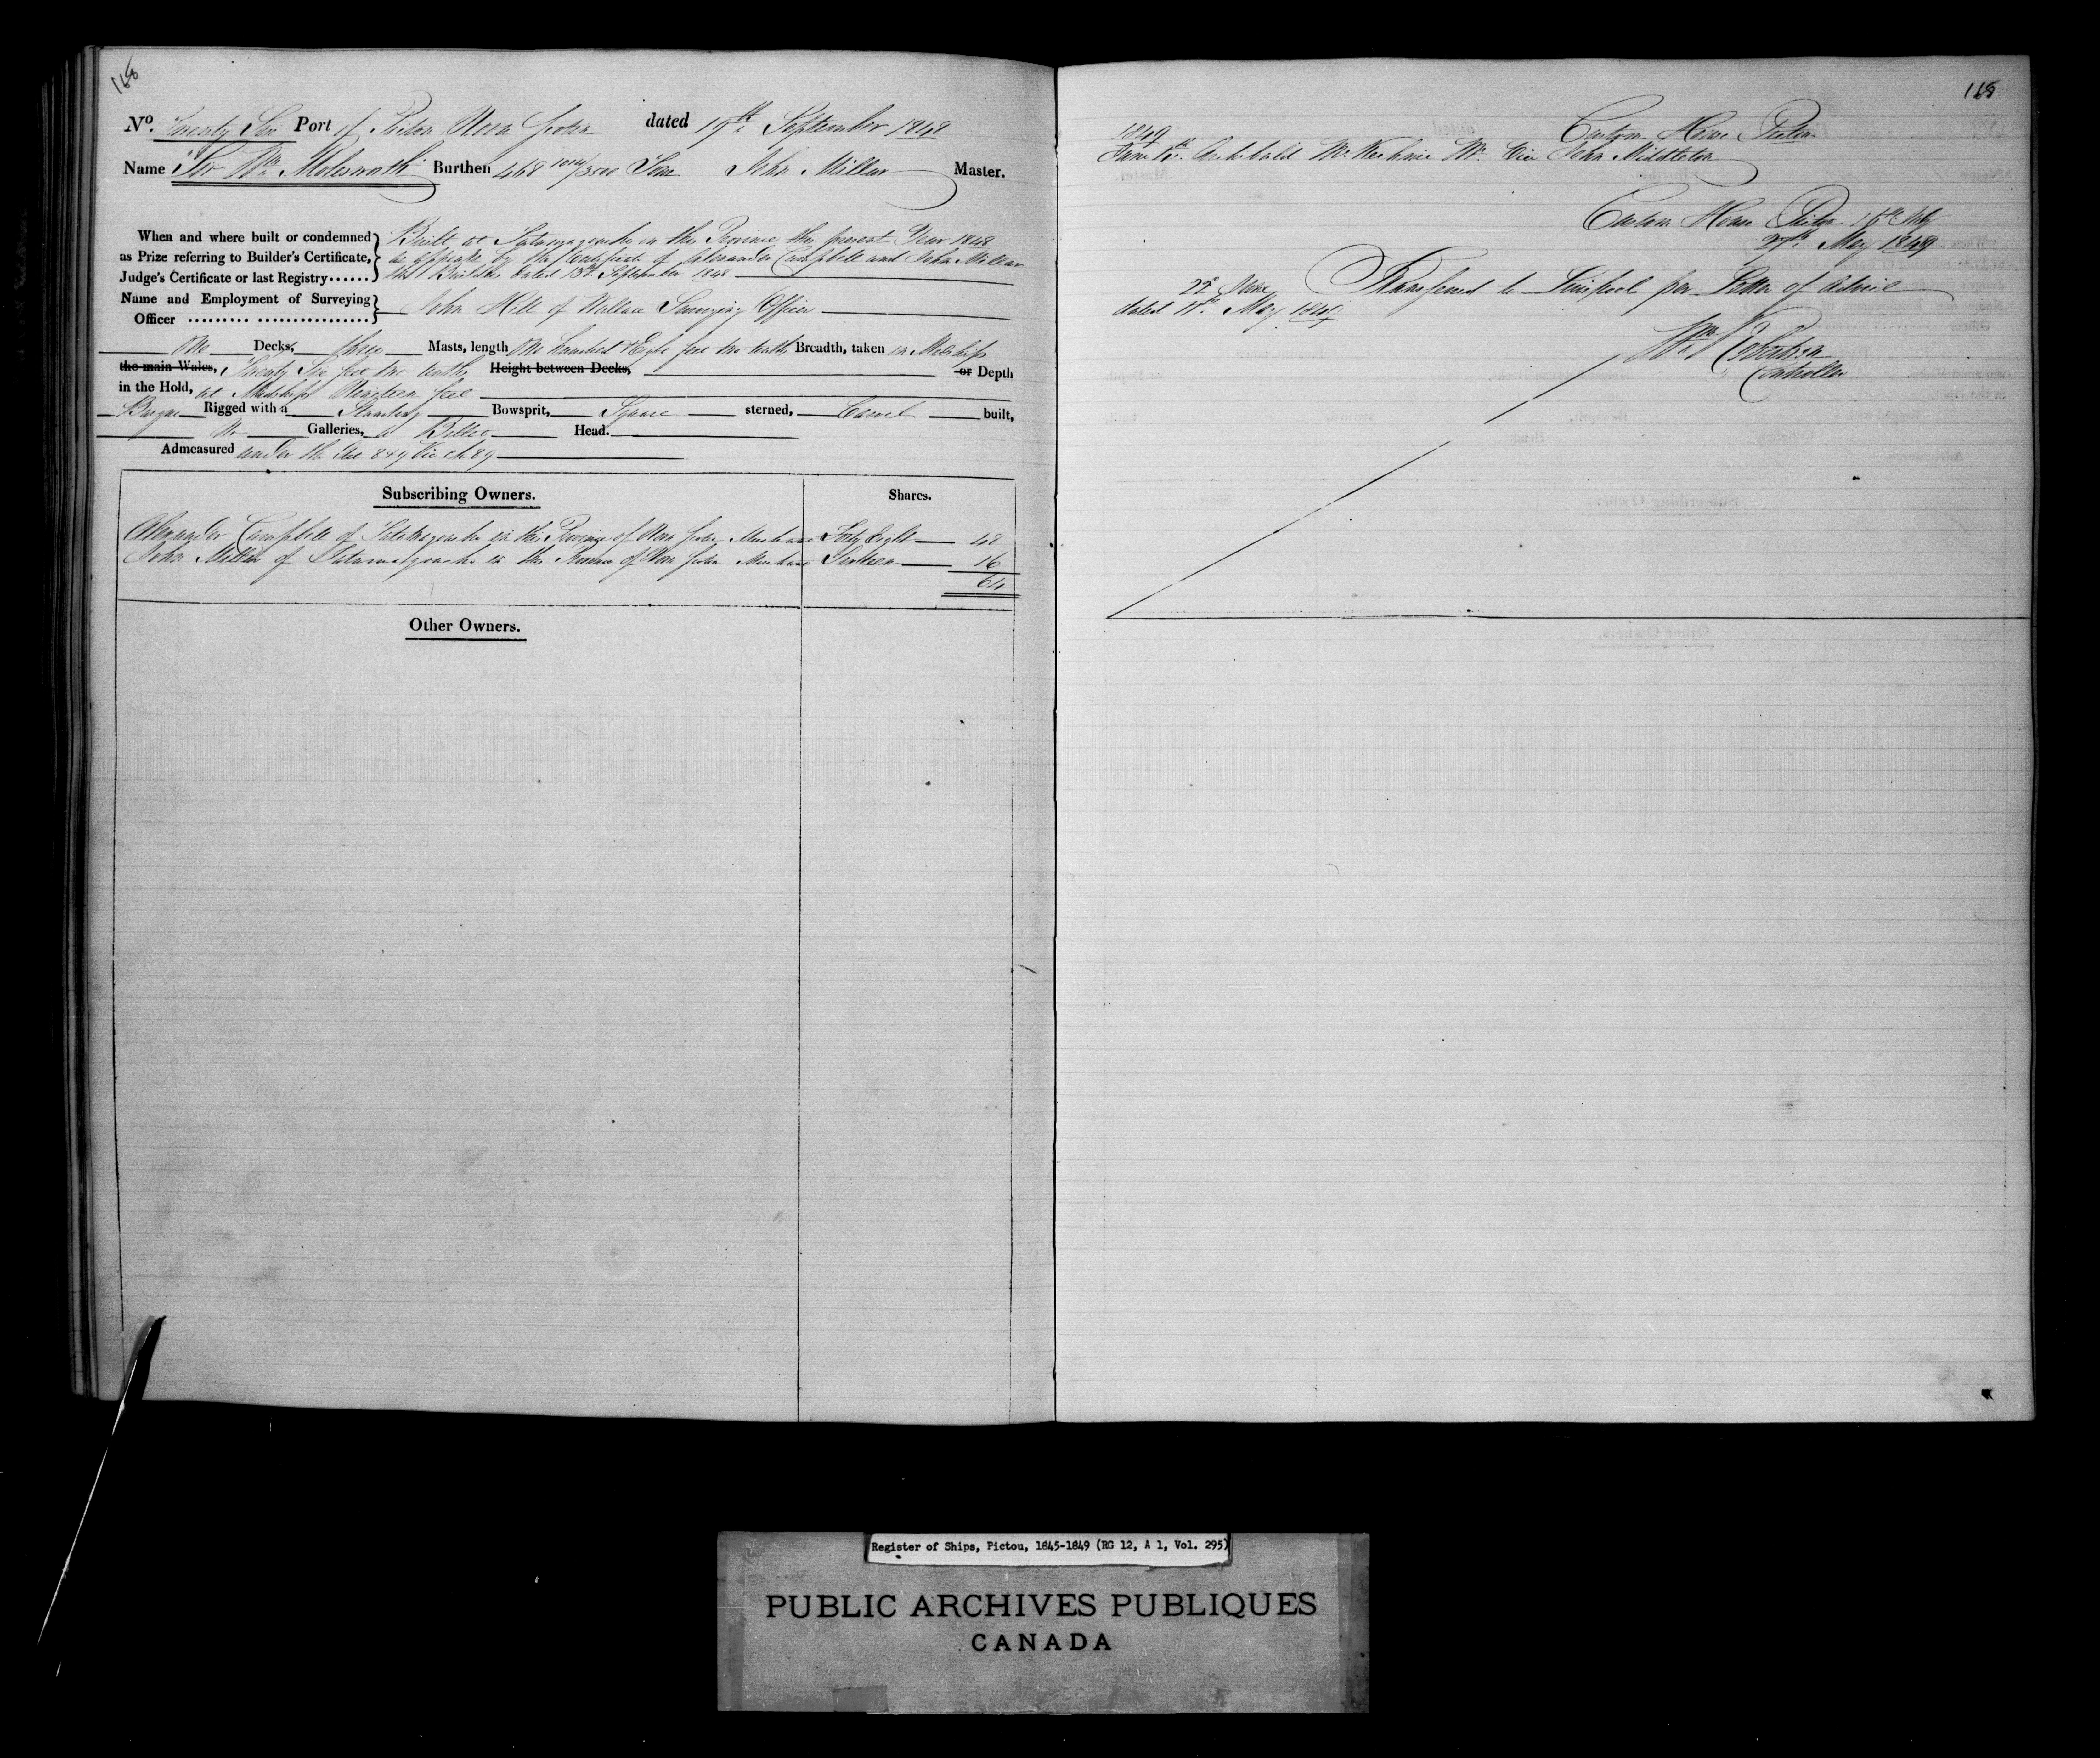 168
No. Twenty Six Port of Pictou Nova Scotia dated 19th September 1848
Name "Sir Wm. Molesworth" Burthen 468 /3500 Tons John Millar Master.
When and where built or condemned
as Prize referring to Builder's Certificate,
Judge's Certificate or last Registry......
Built at Tatamagouche in this Province this present Year 1848
as appears by the Certificate of Alexander Campbell and John Millar
the Builders dated 13th. September 1848
Name and Employment of Surveying
Officer ......... ................
John Hill of Wallace Surveying Officer
One Decks, three Masts, length One hundred & Eight feet two tenths Breadth, taken in Midships
the main Wales, Twenty Six feet two tenths Height between Decks, or Depth
in the Hold, at Midships Nineteen feet
Barque Rigged with a Standing Bowsprit, Square sterned, Carvel built,
No Galleries, a Billet Head.
Admeasured under the Act 8 & 9 Vic ch 89
Subscribing Owners. Shares.
Alexander Campbell of Tatamagouche in the Province of Nova Scotia Merchant Forty Eight 48
John Millar of Tatamagouche in the Province of Nova Scotia Merchant Sixteen 16
64
Other Owners.
168
Custom House Pictou
1849
Archibald Mr. Vice John Middleton
Custom House Pictou
27th. May 1849
22d June Transferred to Liverpool per Letter of Advice
dated 11th. May 1849
Wm Robertson
Controller
Register of Ships, Pictou, 1845-1849 (RG 12, A 1, Vol. 295)
PUBLIC ARCHIVES PUBLIQUES
CANADA